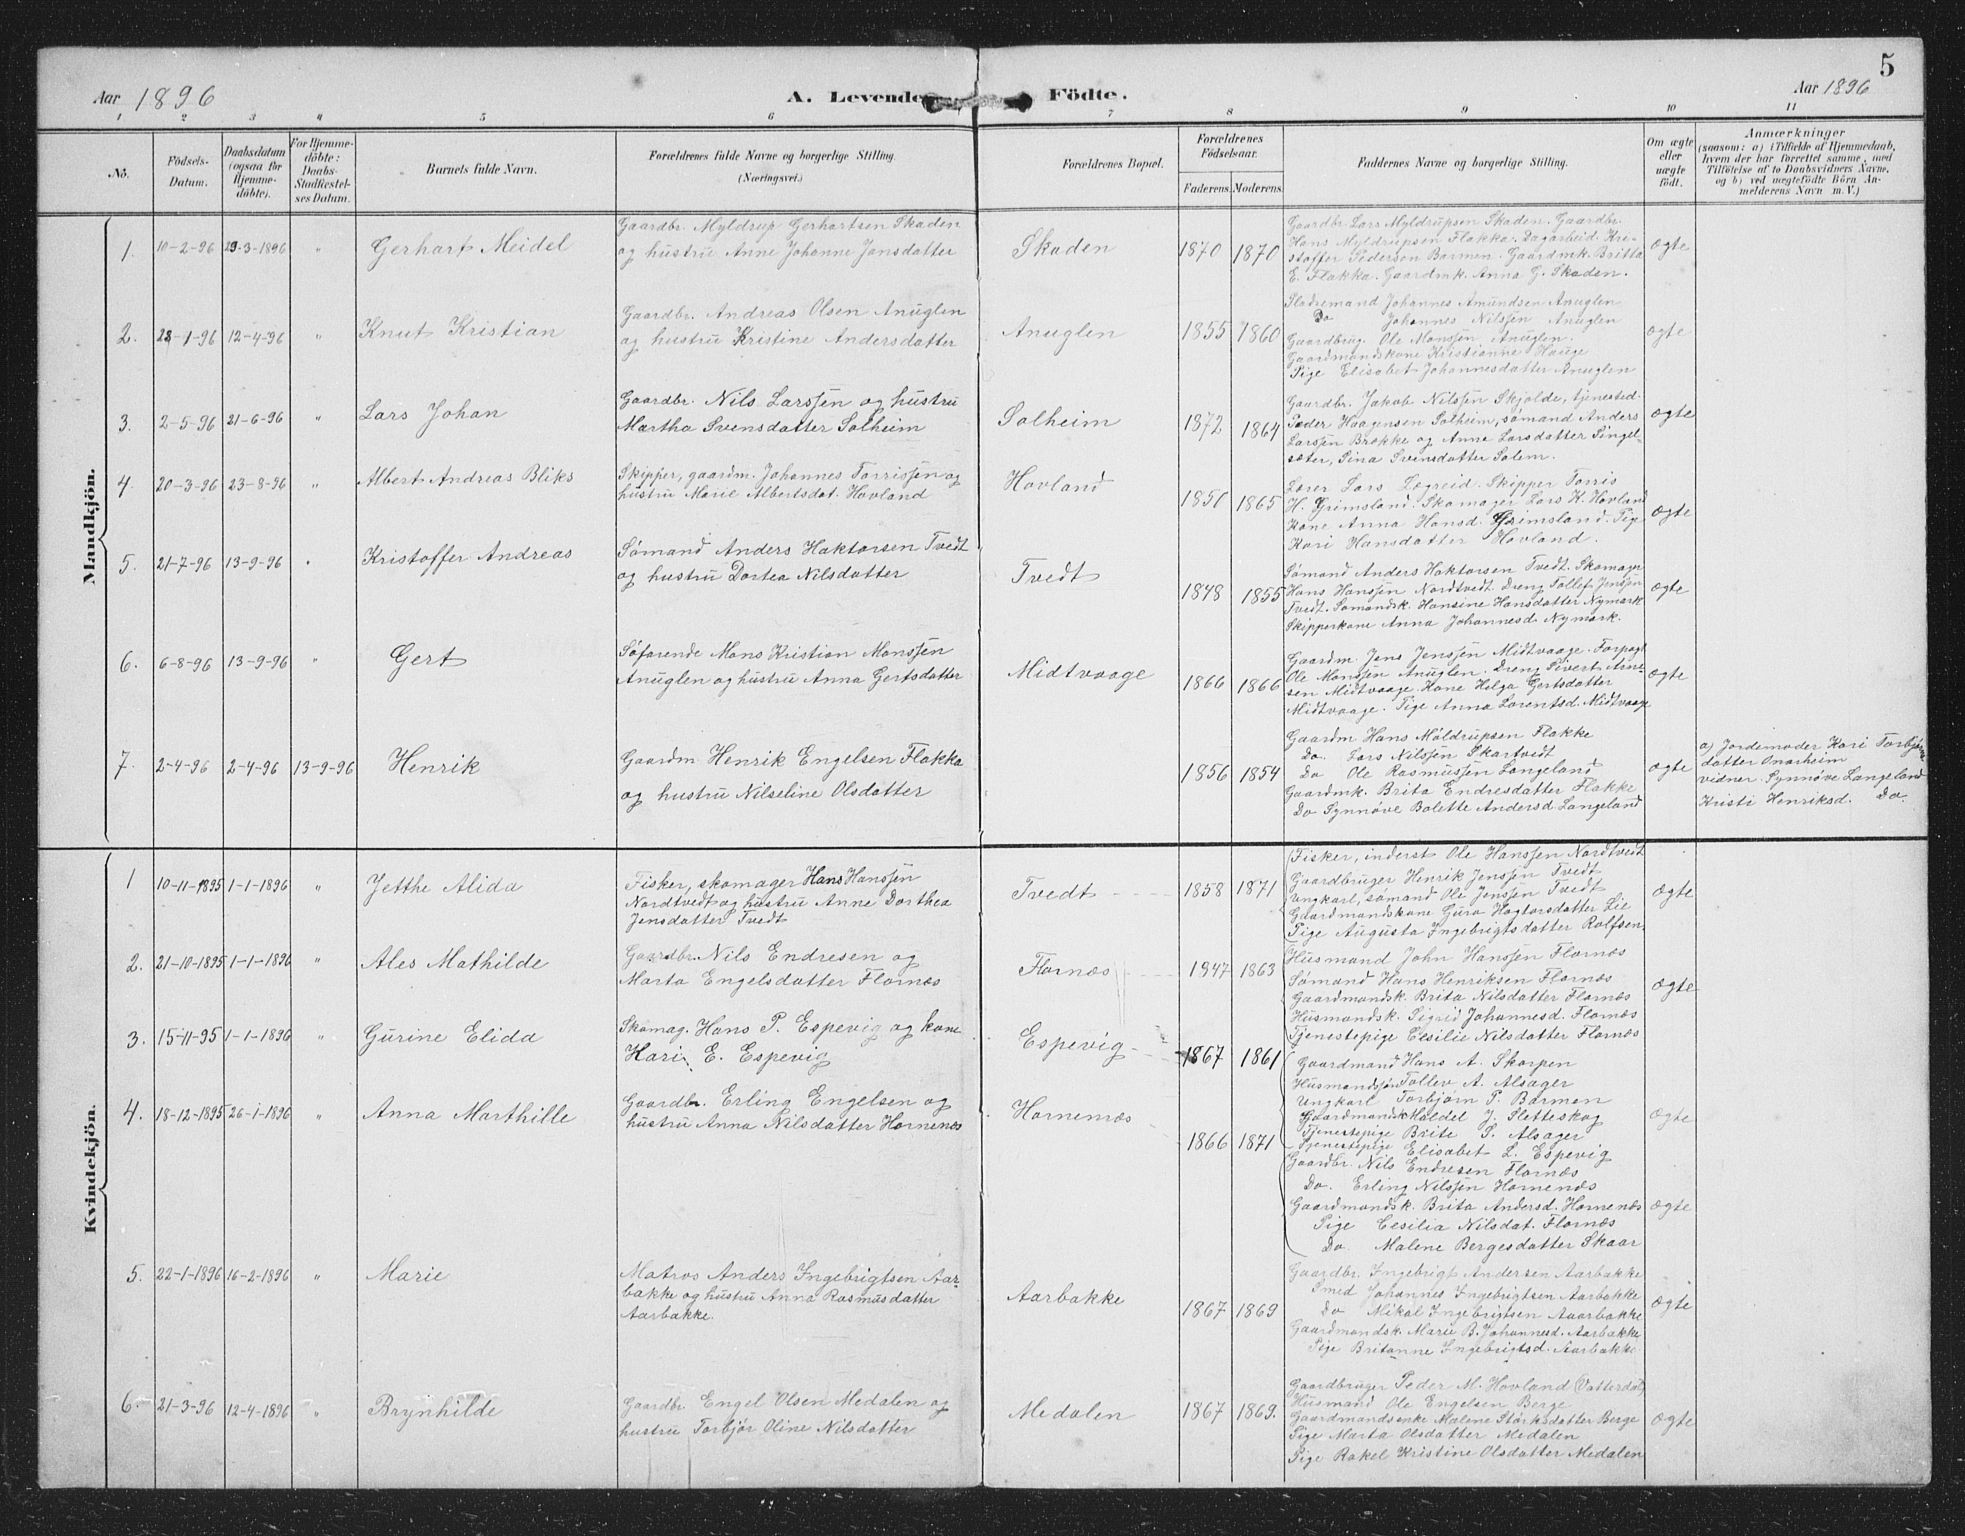 5
Aar 1896
A. Levende Födte.
Aar 1896
1 2 3 4 5 6 7 8 9 10 11
No.
Födsels-Datum.
Daabsdatum (ogsaa for Hjemmedöbte).
For Hjemmedöbte: Daabs-Stadfæstelses Datum.
Barnets fulde Navn.
Forældrenes fulde Navne og borgerlige Stilling.
(Næringsvei.)
Forældrenes Bopæl.
Forældrenes Födselsaar.
Faderens. Moderens.
Faddernes Navne og borgerlige Stilling.
Om ægte eller uægte födt.
Anmærkninger
(saasom: a) i Tilfælde af Hjemmedaab,
hvem der har forrettet samme, med
Tilföielse af to Daabsvidners Navne,
og b) ved uægtefödte Börn An-
melderens Navn m. V.)
Mandkjön.
1. 10-2-96 29-3-1896 " Gerhart Meidel
Gaardbr. Myldrup Gerhartsen Skaden
og hustru Anne Johanne Jonsdatter
Skaden 1870 1870
Gaardbr. Lars Myldrupsen Skaden. Gaardbr.
Hans Myldrupsen Flakka. Dagarbeid. Kri-
stoffer Pedersen Barmen. Gaardmk. Britta
E. Flakka. Gaardmk. Anna G. Skaden.
ægte
2. 28-1-96 12-4-96 " Knut Kristian
Gaardbr. Andreas Olsen Anuglen
og hustru Kristine Andersdatter
Anuglen 1855 1860
Johannes Amundsen Anuglen
Do Johannes Nilssen Anuglen
Gaardbrug. Ole Monssen Anuglen.
Gaardmandskone Kristianne Hauge
Pige Elisabet Johannesdatter Anuglen
ægte
3. 2-5-96 21-6-96 " Lars Johan
Gaardbr. Nils Larssen og hustru
Martha Svensdatter Solheim
Solheim 1872 1864
Gaardbr. Jakob Nilssen Skjolde, tjenested.
Peder Haagensen Solheim, sømand Anders
Larssen Brekke og Anne Larsdatter Singel-
sæter, Sina Svensdatter Solem.
ægte
4. 20-3-96 23-8-96 " Albert Andreas Bliks
Skipper, gaardm. Johannes Torrissen og
hustru Marie Albertsdat. Hovland
Hovland 1851 1865
Lærer Lars Lægreid. Skipper Torris
H. Grimsland. Skomager Lars K. Hovland
Kone Anna Hansd. Grimsland. Pige
Kari Hansdatter Hovland.
ægte
5. 21-7-96 13-9-96 " Kristoffer Andreas
Sømand Anders Haktorsen Tvedt
og hustru Dortea Nilsdatter
Tvedt 1848 1855
Sømand Anders Haktorsen Tvedt. Skomager
Hans Hanssen Nordtvedt. Dreng Tollef Jenssen
Tvedt. Sømandsk. Hansine Hansdatter Nymark
Skipperkone Anna Johannesd. Nymark.
ægte
6. 6-8-96 13-9-96 " Gert
Søfarende Mons Kristian Monssen
Anuglen og hustru Anna Gertsdatter
Midtvaage 1866 1866
Gaardm. Jens Jenssen Midtvaage. Forpagt
Ole Monssen Anuglen. Dreng Sivert Arne-
sen Midtvaage. Kone Helga Gertsdatter
Midtvaage. Pige Anna Lorentsd. Midtvaage
ægte
7. 2-4-96 2-4-96 13-9-96 Henrik
Gaardm. Henrik Engelsen Flakka
og hustru Nilseline Olsdatter
1856 1854
Gaardm Hans Möldrupsen Flakke
Do. Lars Nilssen Skartvedt
Do Ole Rasmussen Langeland
Gaardmk. Brita Endresdatter Flakke
Do Synnøve Bolette Andersd. Langeland
ægte
a) Jordemoder Kari Torbjørns
datter Onarheim
vidner. Synnøve Langeland
Kristi Henriksd. Do.
Kvindekjön.
1 10-11-1895 1-1-1896 " Jetthe Alida
Fisker, skomager Hans Hanssen
Nordtvedt og hustru Anne Dorthea
Jensdatter Tvedt
Tvedt 1858 1871
Fisker, inderst Ole Hanssen Nordtvedt
Gaardbruger Henrik Jenssen Tvedt
Ungkarl, sømand Ole Jenssen Tvedt
Gaardmandskone Guro Hagtorsdatter Lie
Pige Augusta Ingebrigtsdatter Rolfsen.
ægte
2. 21-10-1895 1-1-1896 " Ales Mathilde
Gaardbr. Nils Endresen og
Marta Engelsdatter Flornæs
Flornæs 1947 1863
Husmand John Hanssen Flornæs
Sømand Hans Henriksen Flornæs
Gaardmandsk. Brita Nilsdatter Flornæs
Husmandsk. Sigrid Johannesd. Flornæs
Tjenestepige Cesilie Nilsdatter Flornæs
ægte
3. 15-11-95 1-1-1896 " Gurine Elida
Skomag. Hans P. Espevig og kone
Kari E. Espevig
Espevig 1867 1861
Gaardmand Hans A. Skorpen
Husmandssøn Tollev A. Alsager
Ungkarl Torbjørn P. Barmen
Gaardmandsk. Maldel J. Sletteskog
Tjenestepige Brite S. Alsager
Tjenestepige Elisabet L. Espevig
ægte
4. 18-12-1895 26-1-1896 " Anna Marthille
Gaardbr. Erling Engelsen og
hustru Anna Nilsdatter Hornenæs
Hornenæs 1866 1871
Gaardbr. Nils Endresen Flornæs
Do. Erling Nilssen Hornenæs
Gaardmandsk. Brita Andersd. Hornenæs
Pige Cesilia Nilsdat. Flornæs
Do. Malene Bergesdatter Skaar
ægte
5. 22-1-1896 16-2-1896 " Marie
Matros Anders Ingebrigtsen Aar-
bakke og hustru Anna Rasmusdatter
Aarbakke.
Aarbakke 1867 1869
Gaardbr. Ingebrigt Andersen Aarbakke
Smed Johannes Ingebrigtsen Aarbakke
Do Mikal Ingebrigtsen Aaarbakke
Gaardmandsk. Marie B. Johannesd. Aarbakke
Pige Britanne Ingebrigtsd. Aarbakke.
ægte
6. 21-3-96 12-4-1896 " Brynhilde
Gaardbr. Engel Olsen Medalen og
hustru Torbjør Oline Nilsdatter
Medalen 1867 1869.
Gaardbruger Peder M. Hovland (Vatterdal)
Husmand Ole Engelsen Berge
Gaardmandsenke Malene Størksdatter Berge
Pige Marta Olsdatter Medalen
Pige Rakel Kristine Olsdatter Medalen
ægte